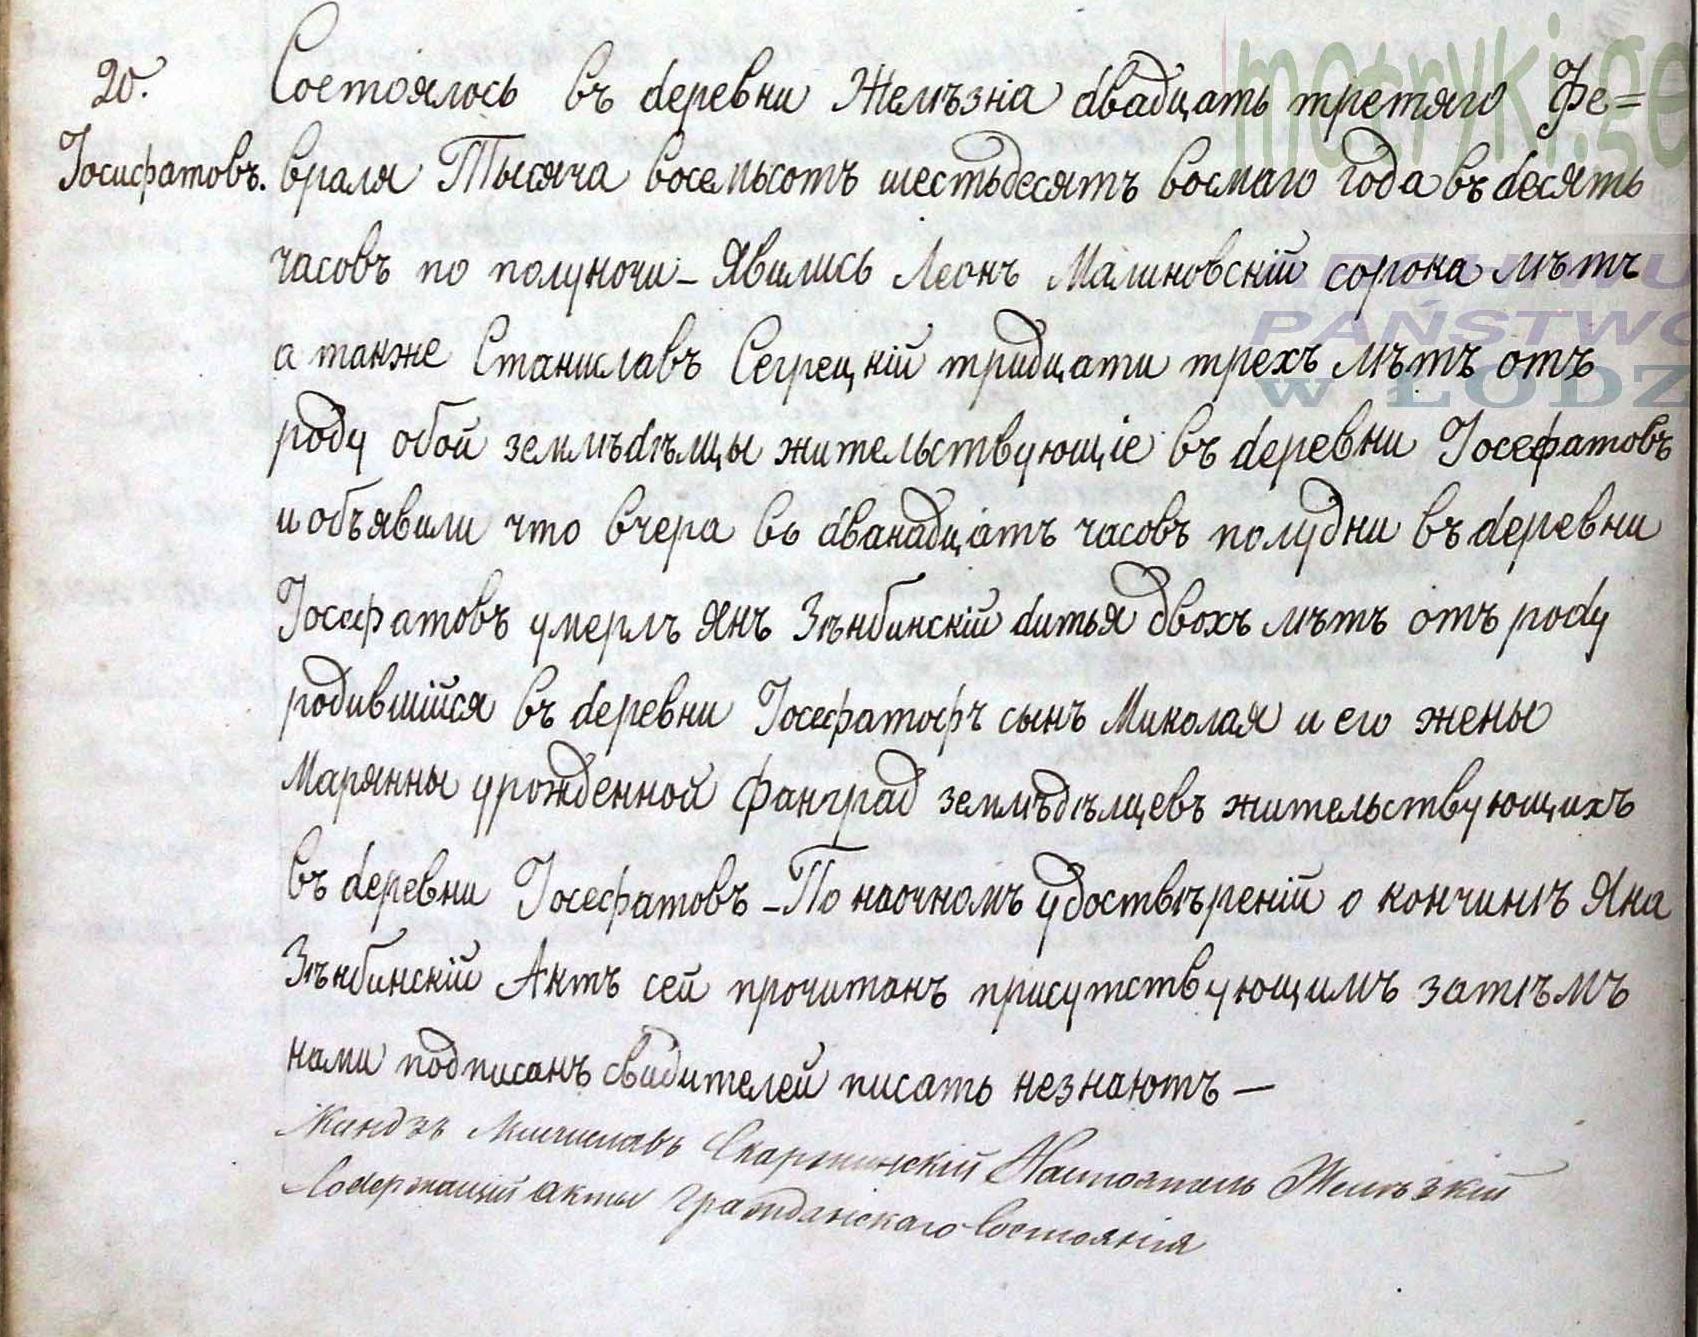 20.
Іосифатовъ.
Состоялось въ деревни Желѣзна двадцать третяго Фе=
враля Тысяча восемьсотъ шестьдесятъ восмаго года въ десять
часовъ по полуночи – Явились Леонъ Малиновскій сорока лѣтъ
а также Станиславъ Сегрецкій тридцати трехъ лѣтъ отъ
роду обой землѣдѣльцы жительствующіе въ деревни Іосефатовъ
и объявили что вчера въ дванадцать часовъ полудни въ деревни
Іосефатовъ умерлъ Янъ Зѣнбинскій дитья двохъ лѣтъ отъ роду
родившійся въ деревни Іосефатофъ сынъ Миколая и его жены
Марянны урожденной Фанград землѣдѣлцевъ жительствующихъ
въ деревни Іосефатовъ – По наочномъ удоствѣреній о кончинѣ Яна
Зѣнбинскій Актъ сей прочитанъ присутствующимъ затѣмъ
нами подписанъ свидителей писать незнаютъ –
Ксндзъ Мечиславъ Скаржинскій Настоятель Желѣзкій
Содержащій акты Гражданскаго Состоянія
metryki.ge
ARCHIWU
PAŃSTWO
W ŁODZ